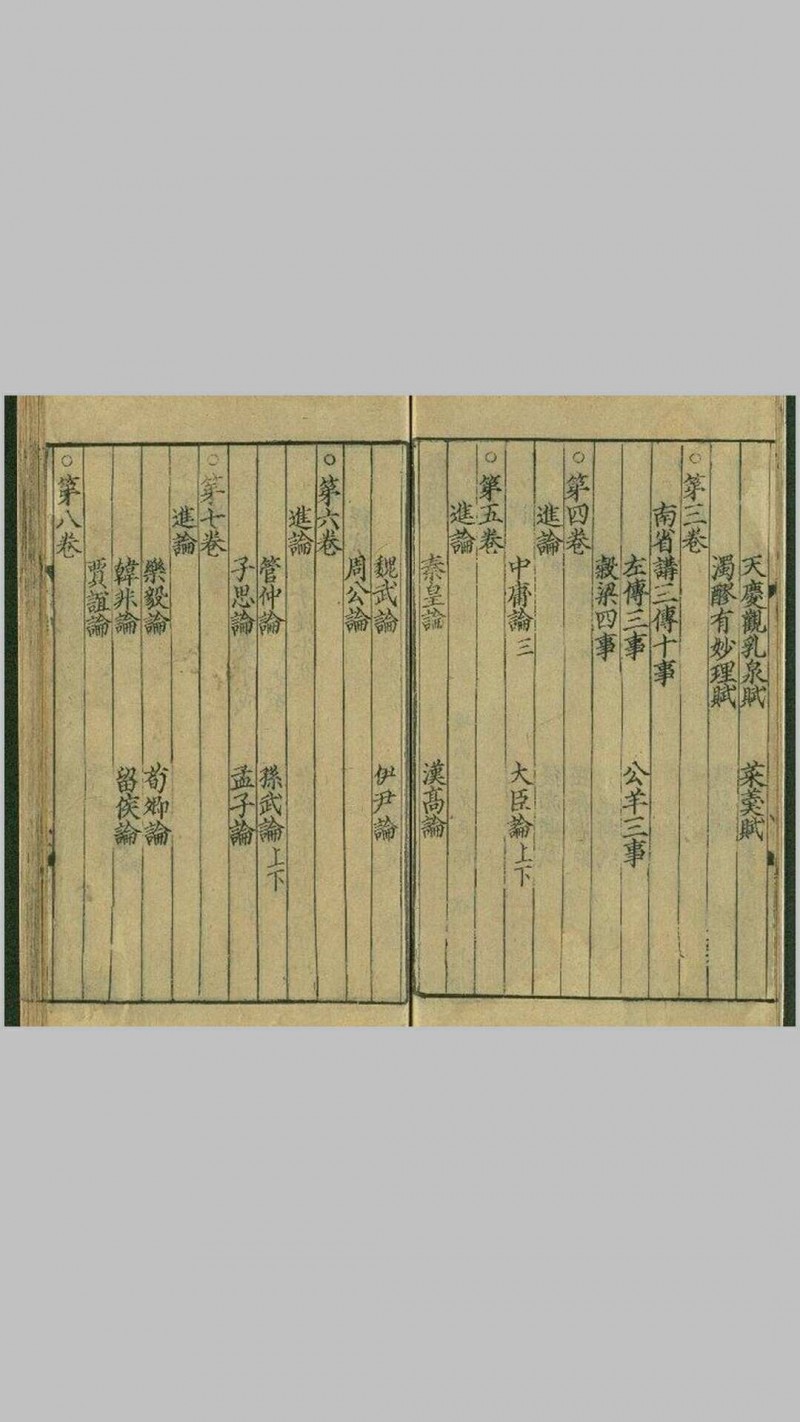 天慶觀乳泉賦　菜羹賦
濁醪有妙理賦
○第三卷
南省講三傳十事
左傳三事　公羊三事
穀梁四事
○第四卷
進論
中庸論三　大臣論上下
○第五卷
進論
秦皇論　漢高論
魏武論　伊尹論
周公論
○第六卷
進論
管仲論　孫武論上下
子思論　孟子論
○第七卷
進論
樂毅論　荀卿論
韓非論　留侯論
賈誼論
○第八卷